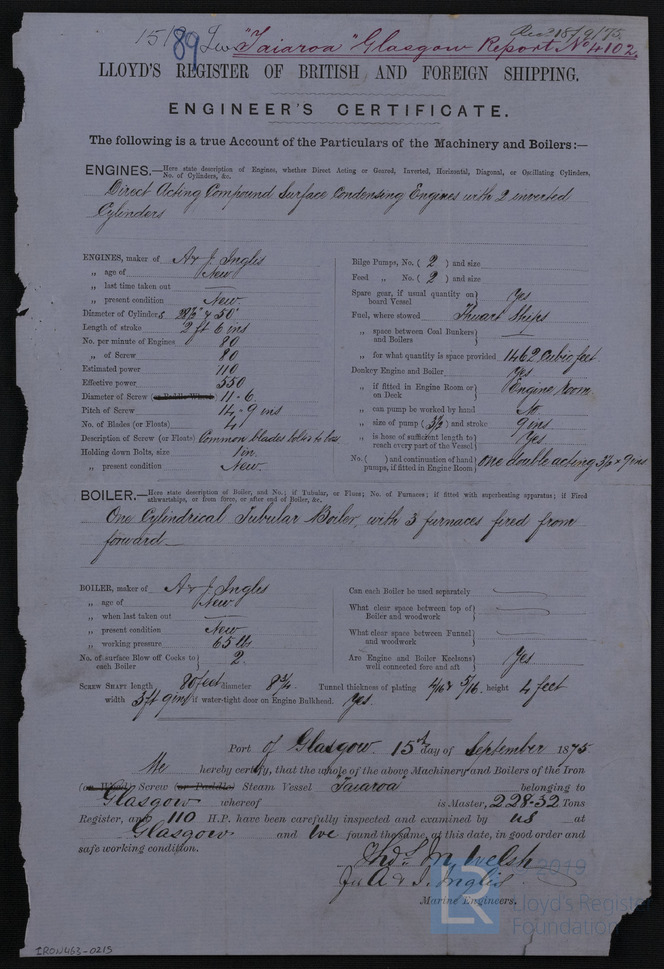 15/89 Iron "Taiaroa" Glasgow Report No 4102.
Rec 18/9/75
LLOYD'S REGISTER OF BRITISH AND FOREIGN SHIPPING.
ENGINEER'S CERTIFICATE.
The following is a true Account of the Particulars of the Machinery and Boilers:—
ENGINES.—Here state description of Engines, whether Direct Acting or Geared, Inverted, Horizontal, Diagonal, or Oscillating Cylinders,
No. of Cylinders, &c.
Direct Acting Compound Surface Condensing Engines with 2 inverted
Cylinders
ENGINES, maker of A & J. Inglis
„ age of New
„ last time taken out —
„ present condition New.
Diameter of Cylinders 28½" & 50"
Length of stroke 2 ft 6 ins
No. per minute of Engines 80
„ of Screw 80
Estimated power 110
Effective power 550
Diameter of Screw (or Paddle Wheel) 11-6.
Pitch of Screw 14-9 ins
No. of Blades (or Floats) 4
Description of Screw (or Floats) Common blades bolted to boss
Holding down Bolts, size 1 in.
„ present condition New.
Bilge Pumps, No. ( 2 ) and size
Feed „ No. ( 2 ) and size
Spare gear, if usual quantity on board Vessel Yes
Fuel, where stowed Thwart Ships
„ space between Coal Bunkers and Boilers
„ for what quantity is space provided 1462 cubic feet
Donkey Engine and Boiler Yes
„ if fitted in Engine Room or on Deck Engine Room
„ can pump be worked by hand No
„ size of pump ( 3½ ) and stroke 9 ins
„ is hose of sufficient length to reach every part of the Vessel Yes
No. ( ) and continuation of hand pumps, if fitted in Engine Room One double acting 3½ × 9 ins
BOILER.—Here state description of Boiler, and No; if Tubular, or Flues; No. of Furnaces; if fitted with superheating apparatus; if Fired
athwartships, or from force, or after end of Boiler, &c.
One Cylindrical Tubular Boiler, with 3 furnaces fired from
forward
BOILER, maker of A & J. Inglis
„ age of New
„ when last taken out —
„ present condition New
„ working pressure 65 lbs
No. of surface Blow off Cocks to each Boiler 2.
Can each Boiler be used separately
What clear space between top of Boiler and woodwork
What clear space between Funnel and woodwork
Are Engine and Boiler Keelsons well connected fore and aft Yes
SCREW SHAFT length 80 feet diameter 8¾ Tunnel thickness of plating 4/16 & 5/16. height 4 feet
width 3 ft 9 ins if water-tight door on Engine Bulkhead. Yes.
Port of Glasgow. 15th day of September 1875
We hereby certify, that the whole of the above Machinery and Boilers of the Iron
(or Wood) Screw (or Paddle) Steam Vessel Taiaroa belonging to
Glasgow whereof is Master, 228.32 Tons
Register, and 110 H.P. have been carefully inspected and examined by us at
Glasgow and We found the same, at this date, in good order and
safe working condition.
for A & J. Inglis
Marine Engineers.
2019
LR
Lloyd's Register
Foundation
IRON463-0215